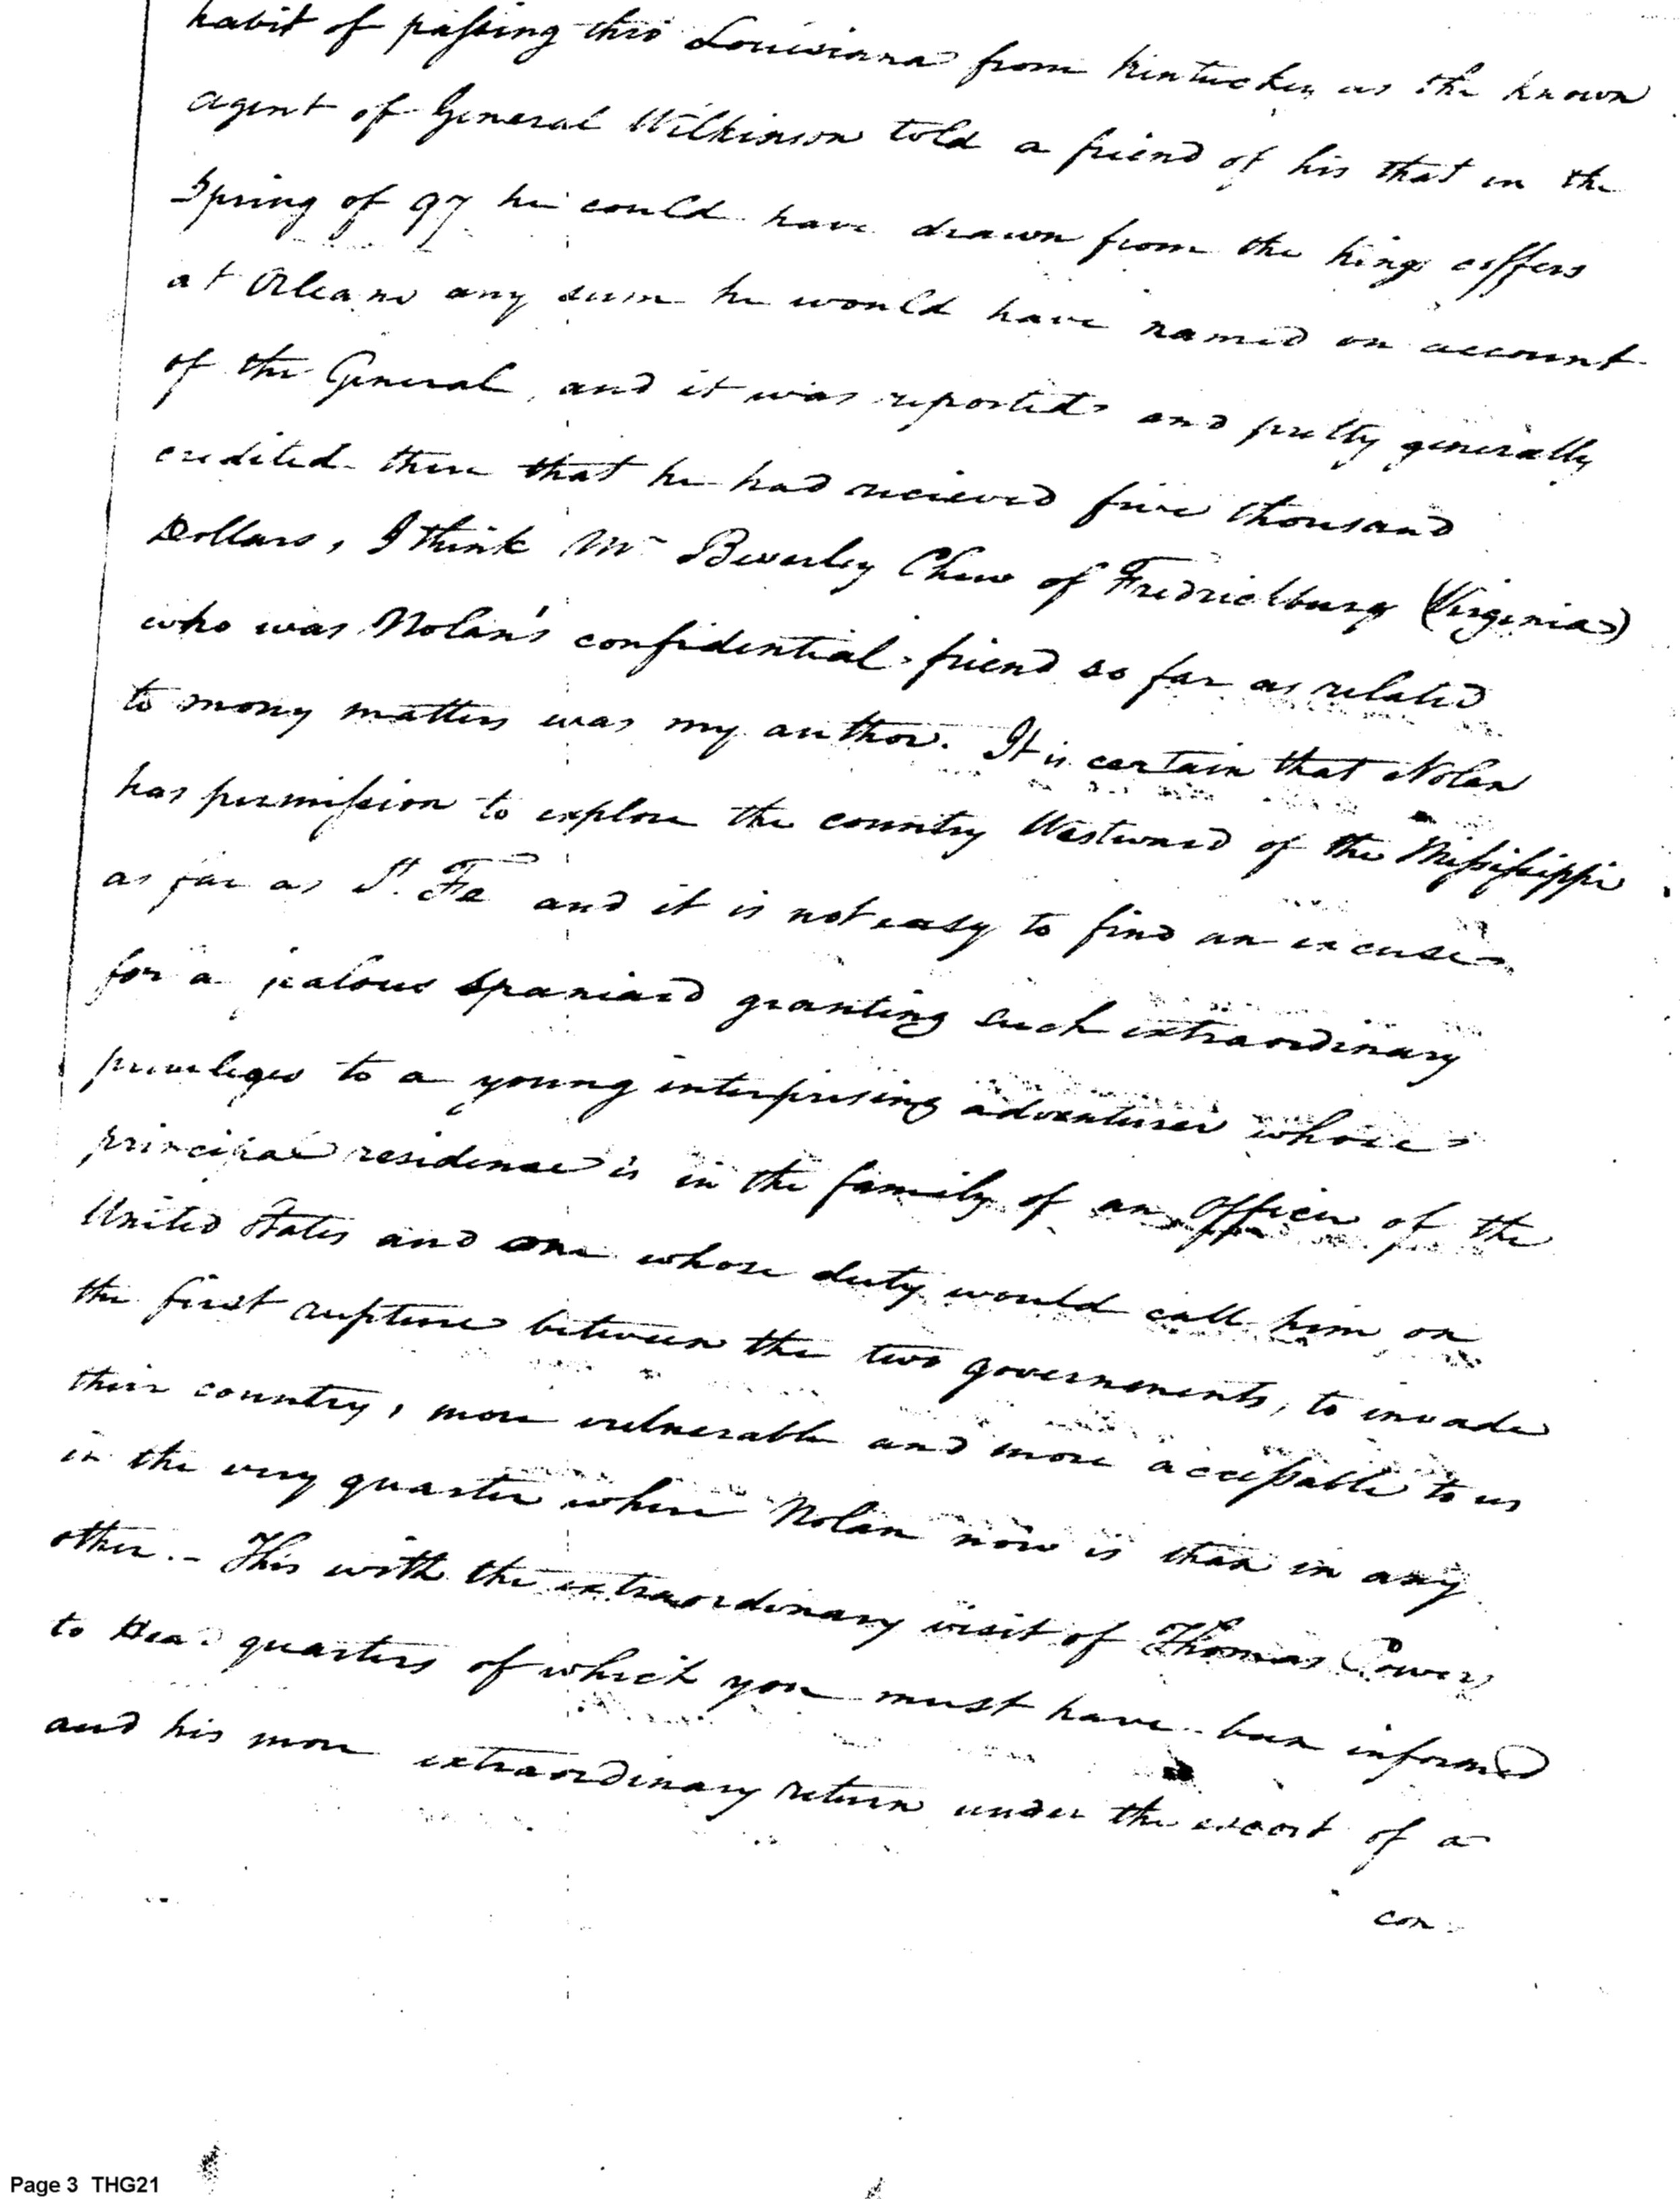 habit of passing thro Louisiana from Kentuckey as the known
agent of General Wilkinson told a friend of his that in the
Spring of 97 he could have drawn from the kings coffers
at Orleans any sum he would have named on account
of the General, and it was reported and pretty generally
credited there that he had recieved five thousand
Dollars, I think Mr Beverley Chew of Fredricksburg (Virginia)
who was Nolan's confidential friend so far as related
to mony matters was my author. It is certain that Nolan
has permission to explore the country Westward of the Mississippi
as far as St. Fe and it is not easy to find an excuse
for a jealous Spaniard granting such extraordinary
privileges to a young interprising adventurer whose
principal residence is in the family of an officer of the
United States and one whose duty would call him on
the first rupture between the two governments, to invade
their country, more vulnerable and more accessable to us
in the very quarter where Nolan now is than in any
other.- This with the extraordinary visit of Thomas Powers
to Head quarters of which you must have been informed
and his more extraordinary return under the escort of a
con-
Page 3 THG21